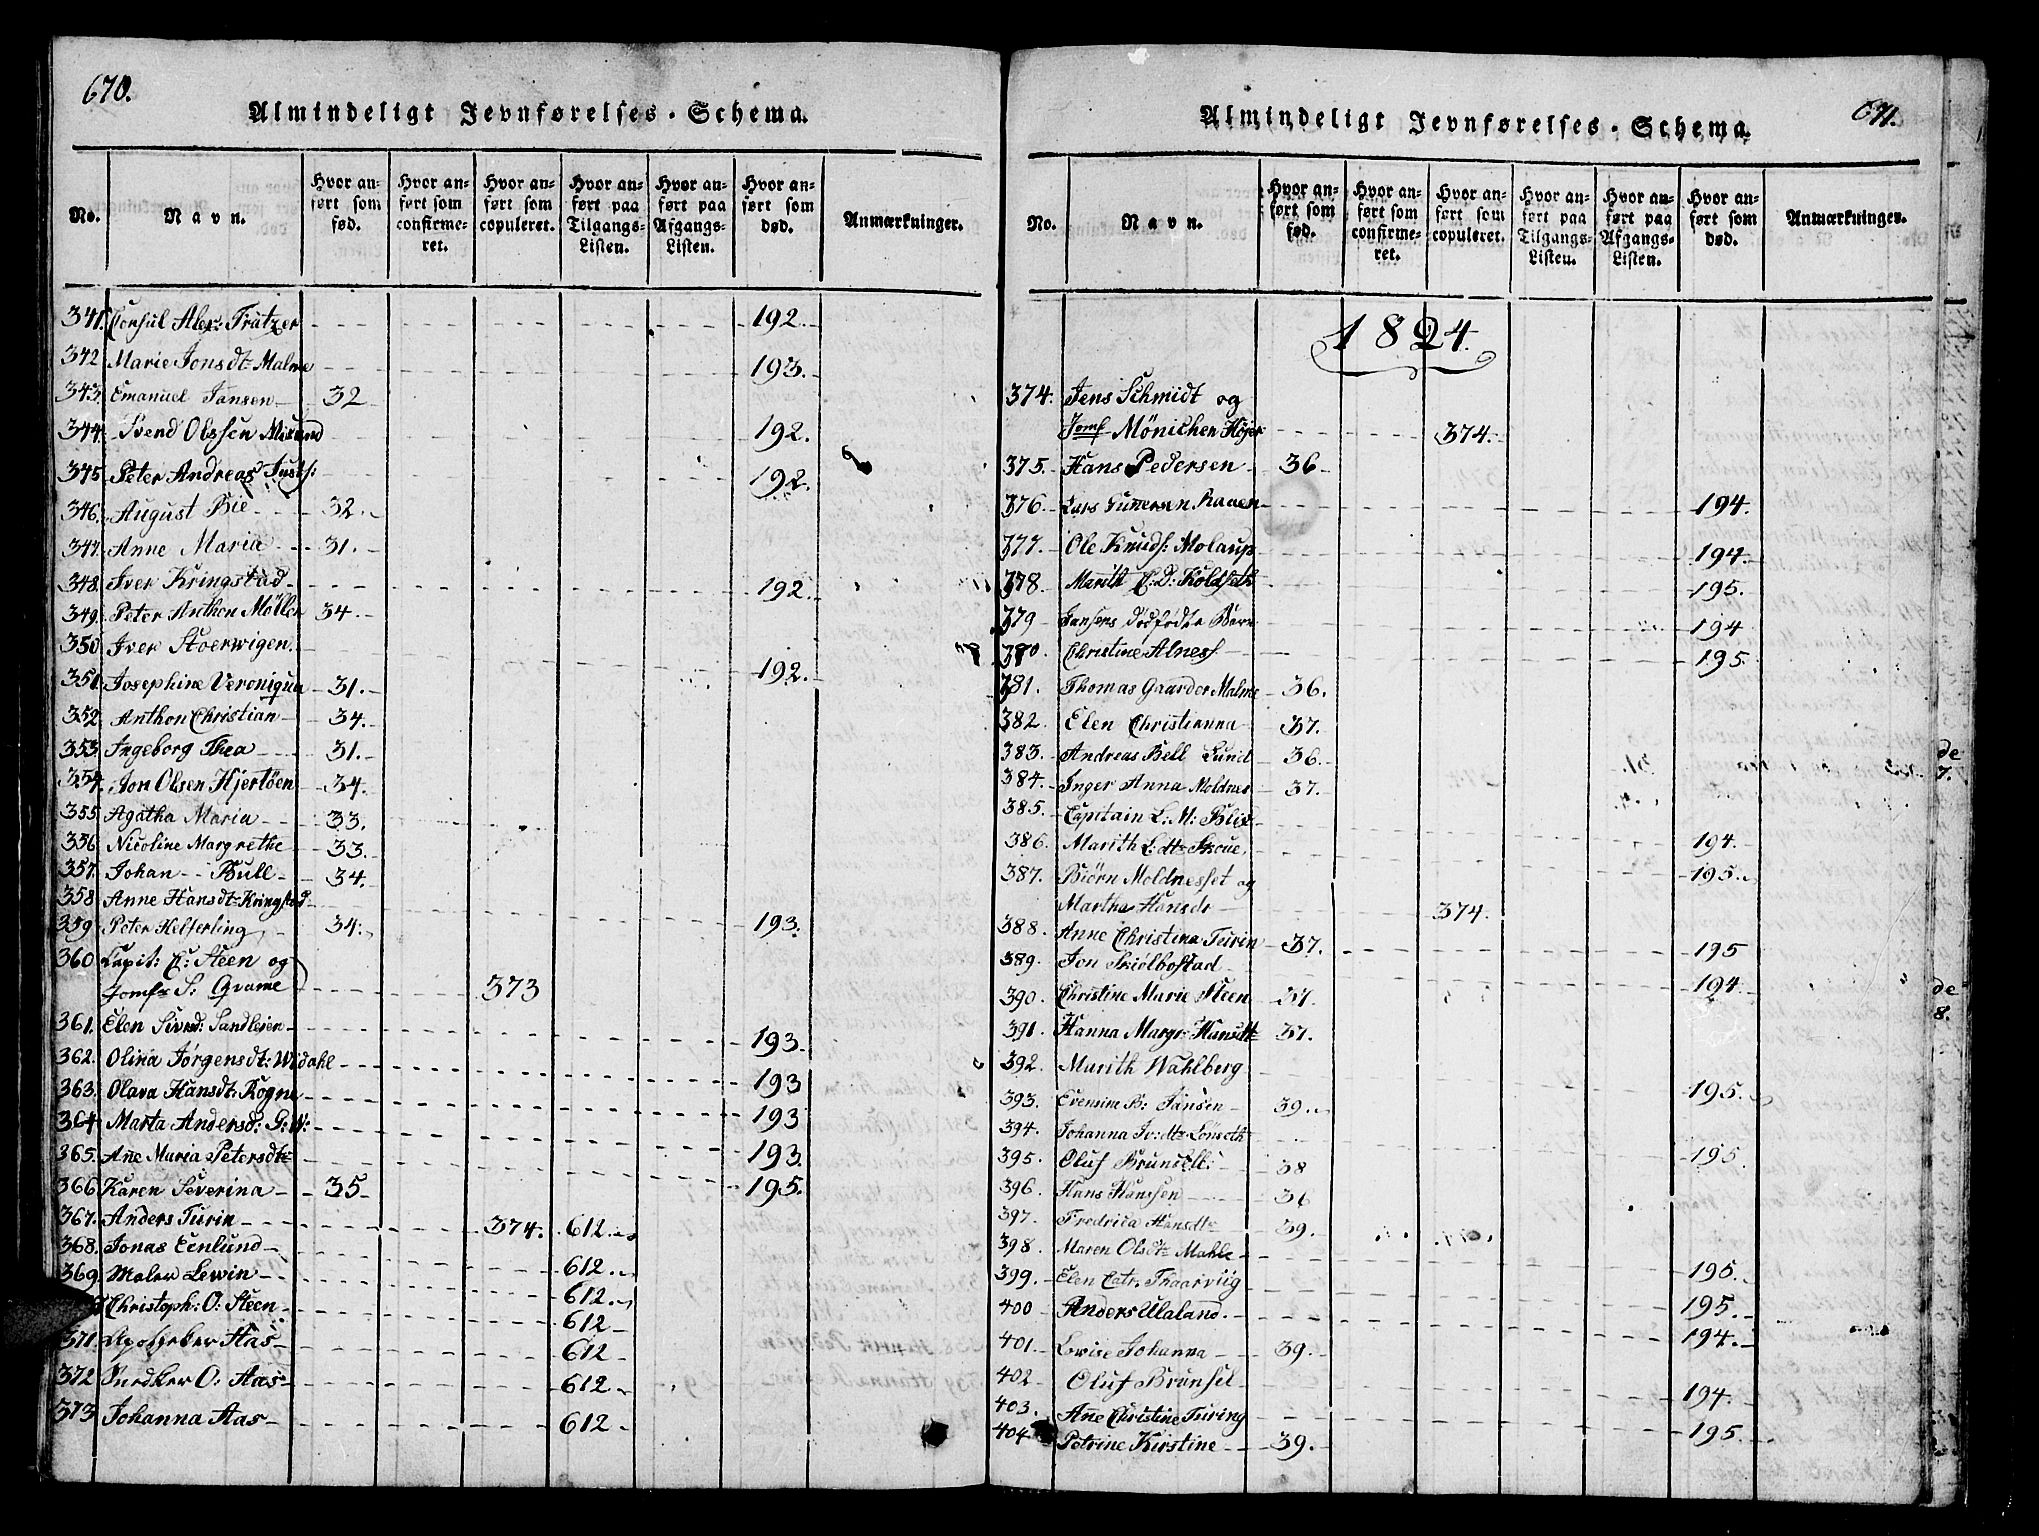 670.
Almindeligt Jevnførelses-Schema.
No.
Navn.
Hvor anført som fød.
Hvor anført som confirmeret.
Hvor anført som copuleret.
Hvor anført paa Tilgangs-Listen.
Hvor anført paa Afgangs-Listen.
Hvor anført som død.
Anmærkninger.
341. Consul Alex: Frützer 192.
342 Marie Jonsdt: Malme 193.
343. Emanuel Jansen 32
344. Svend Olssen 192.
345 Peter Andreas 192.
346. August Bie 32.
347. Anne Maria 31.
348. Iver Kringstad 192.
349. Peter Anthon Møller 34.
350. Iver Stoerwigen. 192.
351. Josephine Veroniqua 31.
352. Anthon Christian 34.
353. Ingeborg Thea 31.
354. Jon Olsen Hjertöen 34.
355. Agatha Maria 33.
356 Nicoline Margrethe 33.
357. Johan Bull 34.
358 Anne Hansdt: Kringstad 193.
359. Peter Helferling 34.
360 Capit: C: Steen og
Jomf: S: Gvame 373
361. Elen Sivrd: Sandleien 193.
362. Olina Jørgensdt: Widahl 193
363. Olava Hansdt: Rogne 193
364 Marta Andersd: G: W: 193.
365. Ane Maria Petersdt: 195.
366. Karen Severina 35
367. Anders Turin 374. 612.
368. Jonas Eenlund 612.
369. Maler Lewin 612.
Christoph: O: Steen 612
371. Apotheker Aas 612
372 O: Aas 612.
373 Johanna Aas 612.
671.
Almindeligt Jevnførelses-Schema.
No.
Navn.
Hvor anført som fød.
Hvor anført som confirmeret.
Hvor anført som copuleret.
Hvor anført paa Tilgangs-Listen.
Hvor anført paa Afgangs-Listen.
Hvor anført som død.
Anmærkninger.
1824.
374. Jens Schmidt og
Jomf Mönichen Höjer 374.
375. Hans Pedersen 36
376. Lars 194.
377. Ole Knuds: Molarup 194.
378. Marith C: D: Koldseth 195.
379 Jansens dödfödte Barn 194
380. Christine Alness 195
381. Thomas Gaarder Malme 36.
382. Elen Christianna 37.
383. Andreas Bell Lund 36.
384. Inger Anna Moldnes 37.
385. Capitain L: M: Blix 194.
386. Marith L: dt: Skoue 195.
387. Biörn Moldnesset og
Martha Hansdt 374.
388. Anne Christina Turin 37. 195
389. Jon Skiölbostad 194.
390. Christine Marie Steen 37.
391. Hanna Margr: Hansdt: 37.
392. Marith Wahlberg 195.
393. Evensine B: Jansen 39.
394. Johanna Iv: dt: Lönseth 195.
395. Oluf Brunsell: 38
396. Hans Hanssen 36
397. Fredrica Hansdt: 39.
398. Maren Olsdt: Mahle 195.
399. Elen Catr: Thaarviig 195.
400 Anders Ulaland. 194.
401. Lovise Johanna 39.
402 Oluf Brunsel 194.
403. Ane Christine Turing 195.
404 Petrine Kirstine 39.
de
7.
de
8.